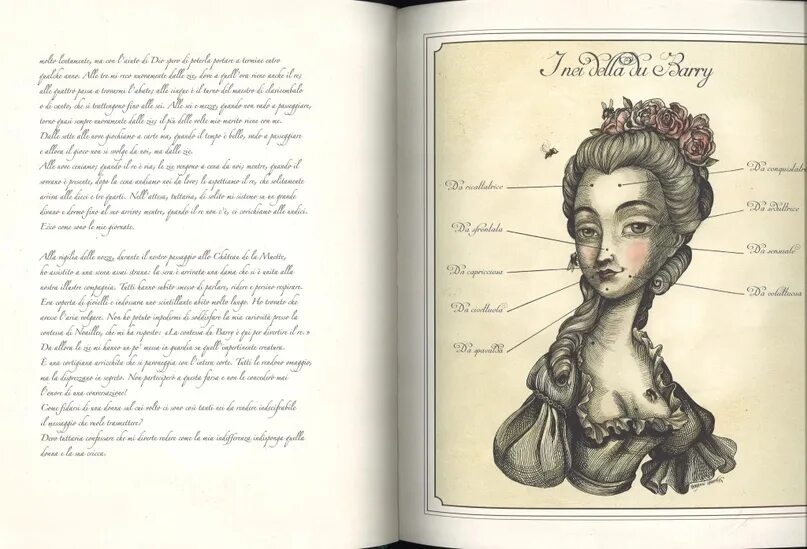 molto lentamente, ma con l'aiuto di Dio spero di poterla portare a termini entro
qualche anno. Alle tre mi reco nuovamente dalle zie, dove a quell'ora viene anche il re;
alle quattro passa a trovarmi l'abate; alle cinque è il turno del maestro di clavicembalo
o di canto, che si trattengono fino alle sei. Alle sei e mezzo, quando non vado a passeggiare,
torno quasi sempre nuovamente dalle zie; il più delle volte mio marito viene con me.
Dalle sette alle nove giochiamo a carte ma, quando il tempo è bello, vado a passeggiare
e allora il gioco non si svolge da noi, ma dalle zie.
Alle nove ceniamo; quando il re è via, le zie vengono a cena da noi; mentre, quando il
sovrano è presente, dopo la cena andiamo noi da loro; lì aspettiamo il re, che solitamente
arriva alle dieci e tre quarti. Nell'attesa, tuttavia, di solito mi sistemo su un grande
divano e dormo fino al suo arrivo; mentre, quando il re non c'è, ci corichiamo alle undici.
Ecco come sono le mie giornate.
Alla vigilia delle nozze, durante il nostro passaggio allo Château de la Muette,
ho assistito a una scena assai strana: la sera è arrivata una dama che si è unita alla
nostra illustre compagnia. Tutti hanno subito smesso di parlare, ridere e persino respirare.
Era coperta di gioielli e indossava uno scintillante abito molto lungo. Ho trovato che
avesse l'aria volgare. Non ho potuto impedirmi di soddisfare la mia curiosità presso la
contessa di Noailles, che mi ha risposto: «La contessa du Barry è qui per divertire il re.»
Da allora le zie mi hanno un po' messa in guardia su quell'impertinente creatura.
È una cortigiana arricchita che si pavoneggia con l'intera corte. Tutti le rendono omaggio,
ma la disprezzano in segreto. Non parteciperò a questa farsa e non le concederò mai
l'onore di una conversazione!
Come fidarsi di una donna sul cui volto ci sono così tanti nei da rendere indecifrabile
il messaggio che vuole trasmettere?
Devo tuttavia confessare che mi diverte vedere come la mia indifferenza indisponga quella
donna e la sua cricca.
I nei della du Barry
Da ricattatrice
Da sfrontata
Da capricciosa
Da civettuola
Da spavalda
Da conquistatri
Da seduttrice
Da sensuale
Da voluttuosa